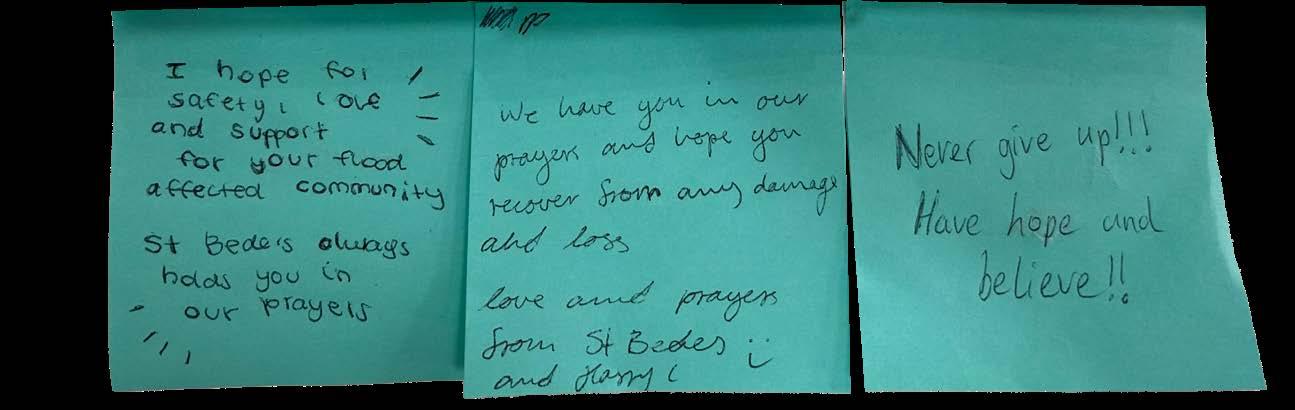 I hope for
safety, love
and support
for your flood
affected community
St Bede's always
holds you in
our prayers
We have you in our
prayers and hope you
recover from any damage
and loss
love and prayers
from St Bedes :)
and Harry C
Never give up!!!
Have hope and
believe!!